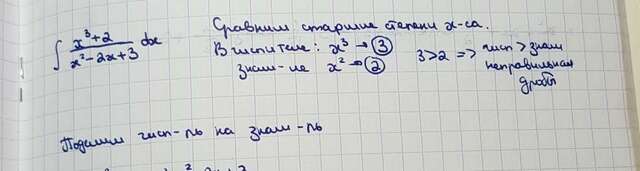 ∫ (x³+2)/(x²-2x+3) dx
Сравним старшие степени x-са.
В числителе: x³ → 3
знам-ле x² → 2
3>2 => числ > знам
неправильная
дробь
Поделим числ-ль на знам-ль